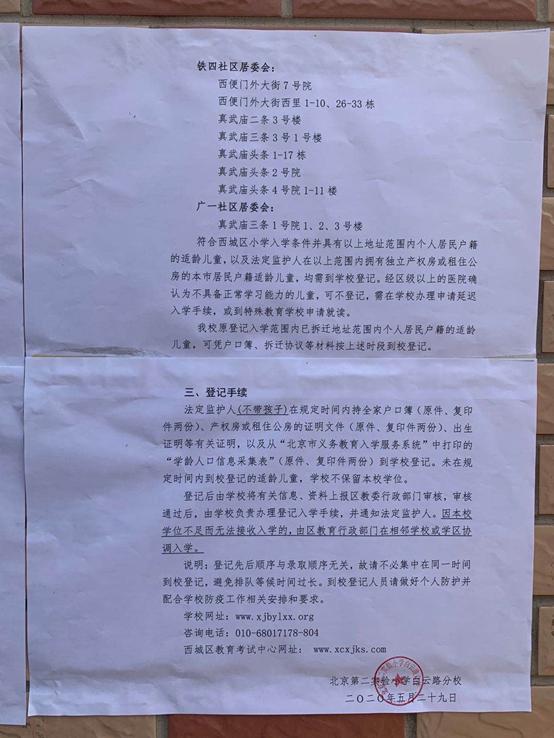 铁四社区居委会：
西便门外大街7号院
西便门外大街西里1-10、26-33栋
真武庙二条3号楼
真武庙三条3号1号楼
真武庙头条1-17栋
真武庙头条2号院
真武庙头条4号院1-11楼
广一社区居委会：
真武庙三条1号院1、2、3号楼
符合西城区小学入学条件并具有以上地址范围内个人居民户籍
的适龄儿童，以及法定监护人在以上范围内拥有独立产权房或租住公
房的本市居民户籍适龄儿童，均需到学校登记。经区级以上的医院确
认为不具备正常学习能力的儿童，可不登记，需在学校办理申请延迟
入学手续，或到特殊教育学校申请就读。
我校原登记入学范围内已拆迁地址范围内个人居民户籍的适龄
儿童，可凭户口簿、拆迁协议等材料按上述时段到校登记。
三、登记手续
法定监护人(不带孩子)在规定时间内持全家户口簿（原件、复印
件两份）、产权房或租住公房的证明文件（原件、复印件两份）、出生
证明等有关证明，以及从“北京市义务教育入学服务系统”中打印的
“学龄人口信息采集表”（原件、复印件两份）到学校登记。未在规
定时间内到校登记的适龄儿童，学校不保留本校学位。
登记后由学校将有关信息、资料上报区教委行政部门审核，审核
通过后，由学校负责办理登记入学手续，并通知法定监护人。因本校
学位不足而无法接收入学的，由区教育行政部门在相邻学校或学区协
调入学。
说明：登记先后顺序与录取顺序无关，故请不必集中在同一时间
到校登记，避免排队等候时间过长。到校登记人员请做好个人防护并
配合学校防疫工作相关安排和要求。
学校网址：www.xjbylxx.org
咨询电话：010-68017178-804
西城区教育考试中心网址： www.xcxjks.com
北京第二实验小学白云路分校
二〇二〇年五月二十九日